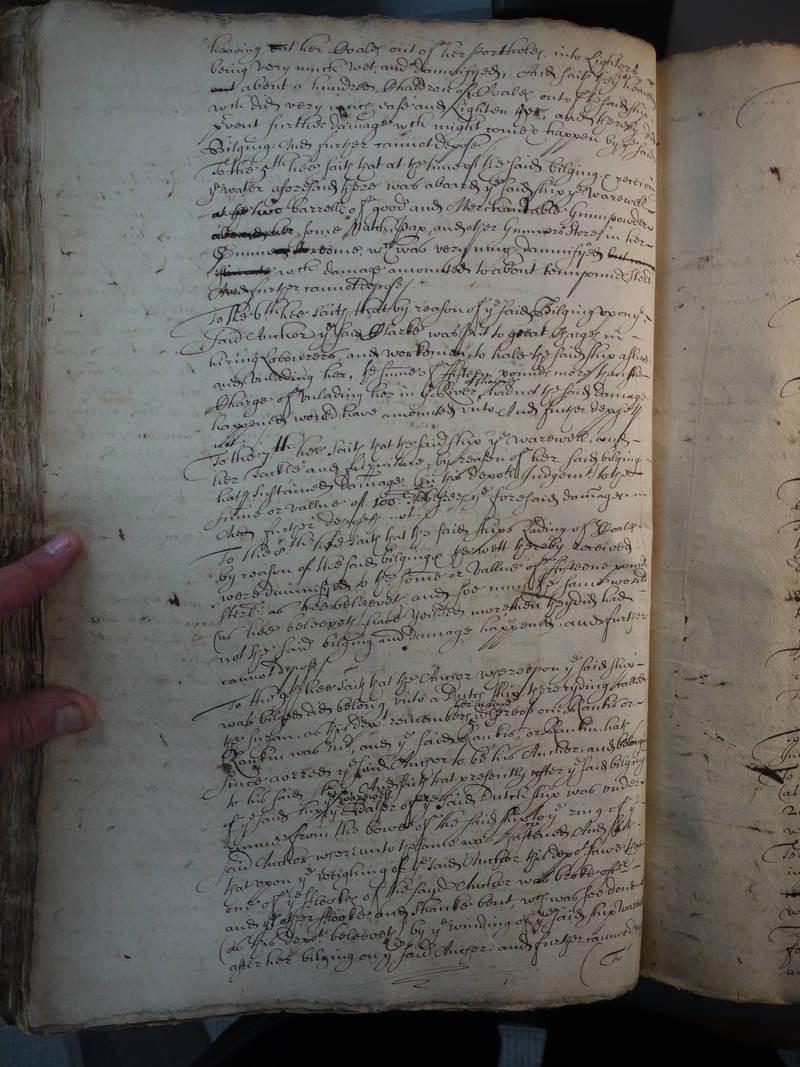 heaving out her Coales out of her portholes into Lighters
being very much wet, and damnifyed, And saith they heaved
out about a hundred Chaldron of Coales out of the said ship
wch did very much ease and Lighten her, and thereby did
prevent further damage wch might come & happen by the said
Bilging: And further cannot depose
To the 5th hee saith that at the time of the said bilging & receiving
ye water aforesaid there was aboard ye said ship ye Warewell
two barrells of good and Merchantable Gunnpowder
some Match, and other Gunners Stores in her
Gunn roome, wch was very much damnifyed
wch damage amounted to about tenn pounds sterl
And further cannot depose
To the 6th hee saith that by reason of ye said Bilging upon ye
said Anchor ye said Clarke was put to great Charges in
hiring Labourers, and workemen, to hale the said ship ashore
and unlading her, the summe of fifteen pounds more than the
Charge of unlading her in ye River of Thames had not the said damage
happened would have amounted unto And further deposeth
not
To the 7th hee saith that the said ship ye Warewell, and
her Tackle and furniture, by reason of her said bilging
hath sustained damage in this depots Judgemt to the
summe or vallue of 100: by ye foresaid damages
And further deposeth not
To the 8th hee saith that the said ships Lading of Coales
by reason of the said bilging & wett thereby received
were damnifyed to the somme or vallue of fifteene pounds
sterl: as hee beleeveth and soe much the same would
(as hee beleeveth) have yeilded more then they did had
not the said bilging and damage happened, and further
cannot depose
To the 9th hee saith that the Anchor whereupon ye said ship
was bilged did belong unto a Dutch ship there ryding called
the Susan as this dept remembers her name whereof one Rankis or
Rankin was Mr, and ye said Rankis, or Rankin hath
since owned ye said Anchor to be his Anchor, and belonging
to his said ship And saith that presently after ye said bilging
of ye said ship ye Warewell ye Halser of ye said Dutch ship was
from the bowes of the said ship to ye ring of ye
said Anchor whereunto the same was fastened And saith
that upon ye weighing of ye said Anchor this depot sawe that
one of ye fflookes of the said Anchor was broke off
and ye other fflooke and shanke bent, wch was soe done
(as this depot beleeveth) by ye winding of ye said ship Warewell
after her bilging on ye said Anchor: and further cannot depose